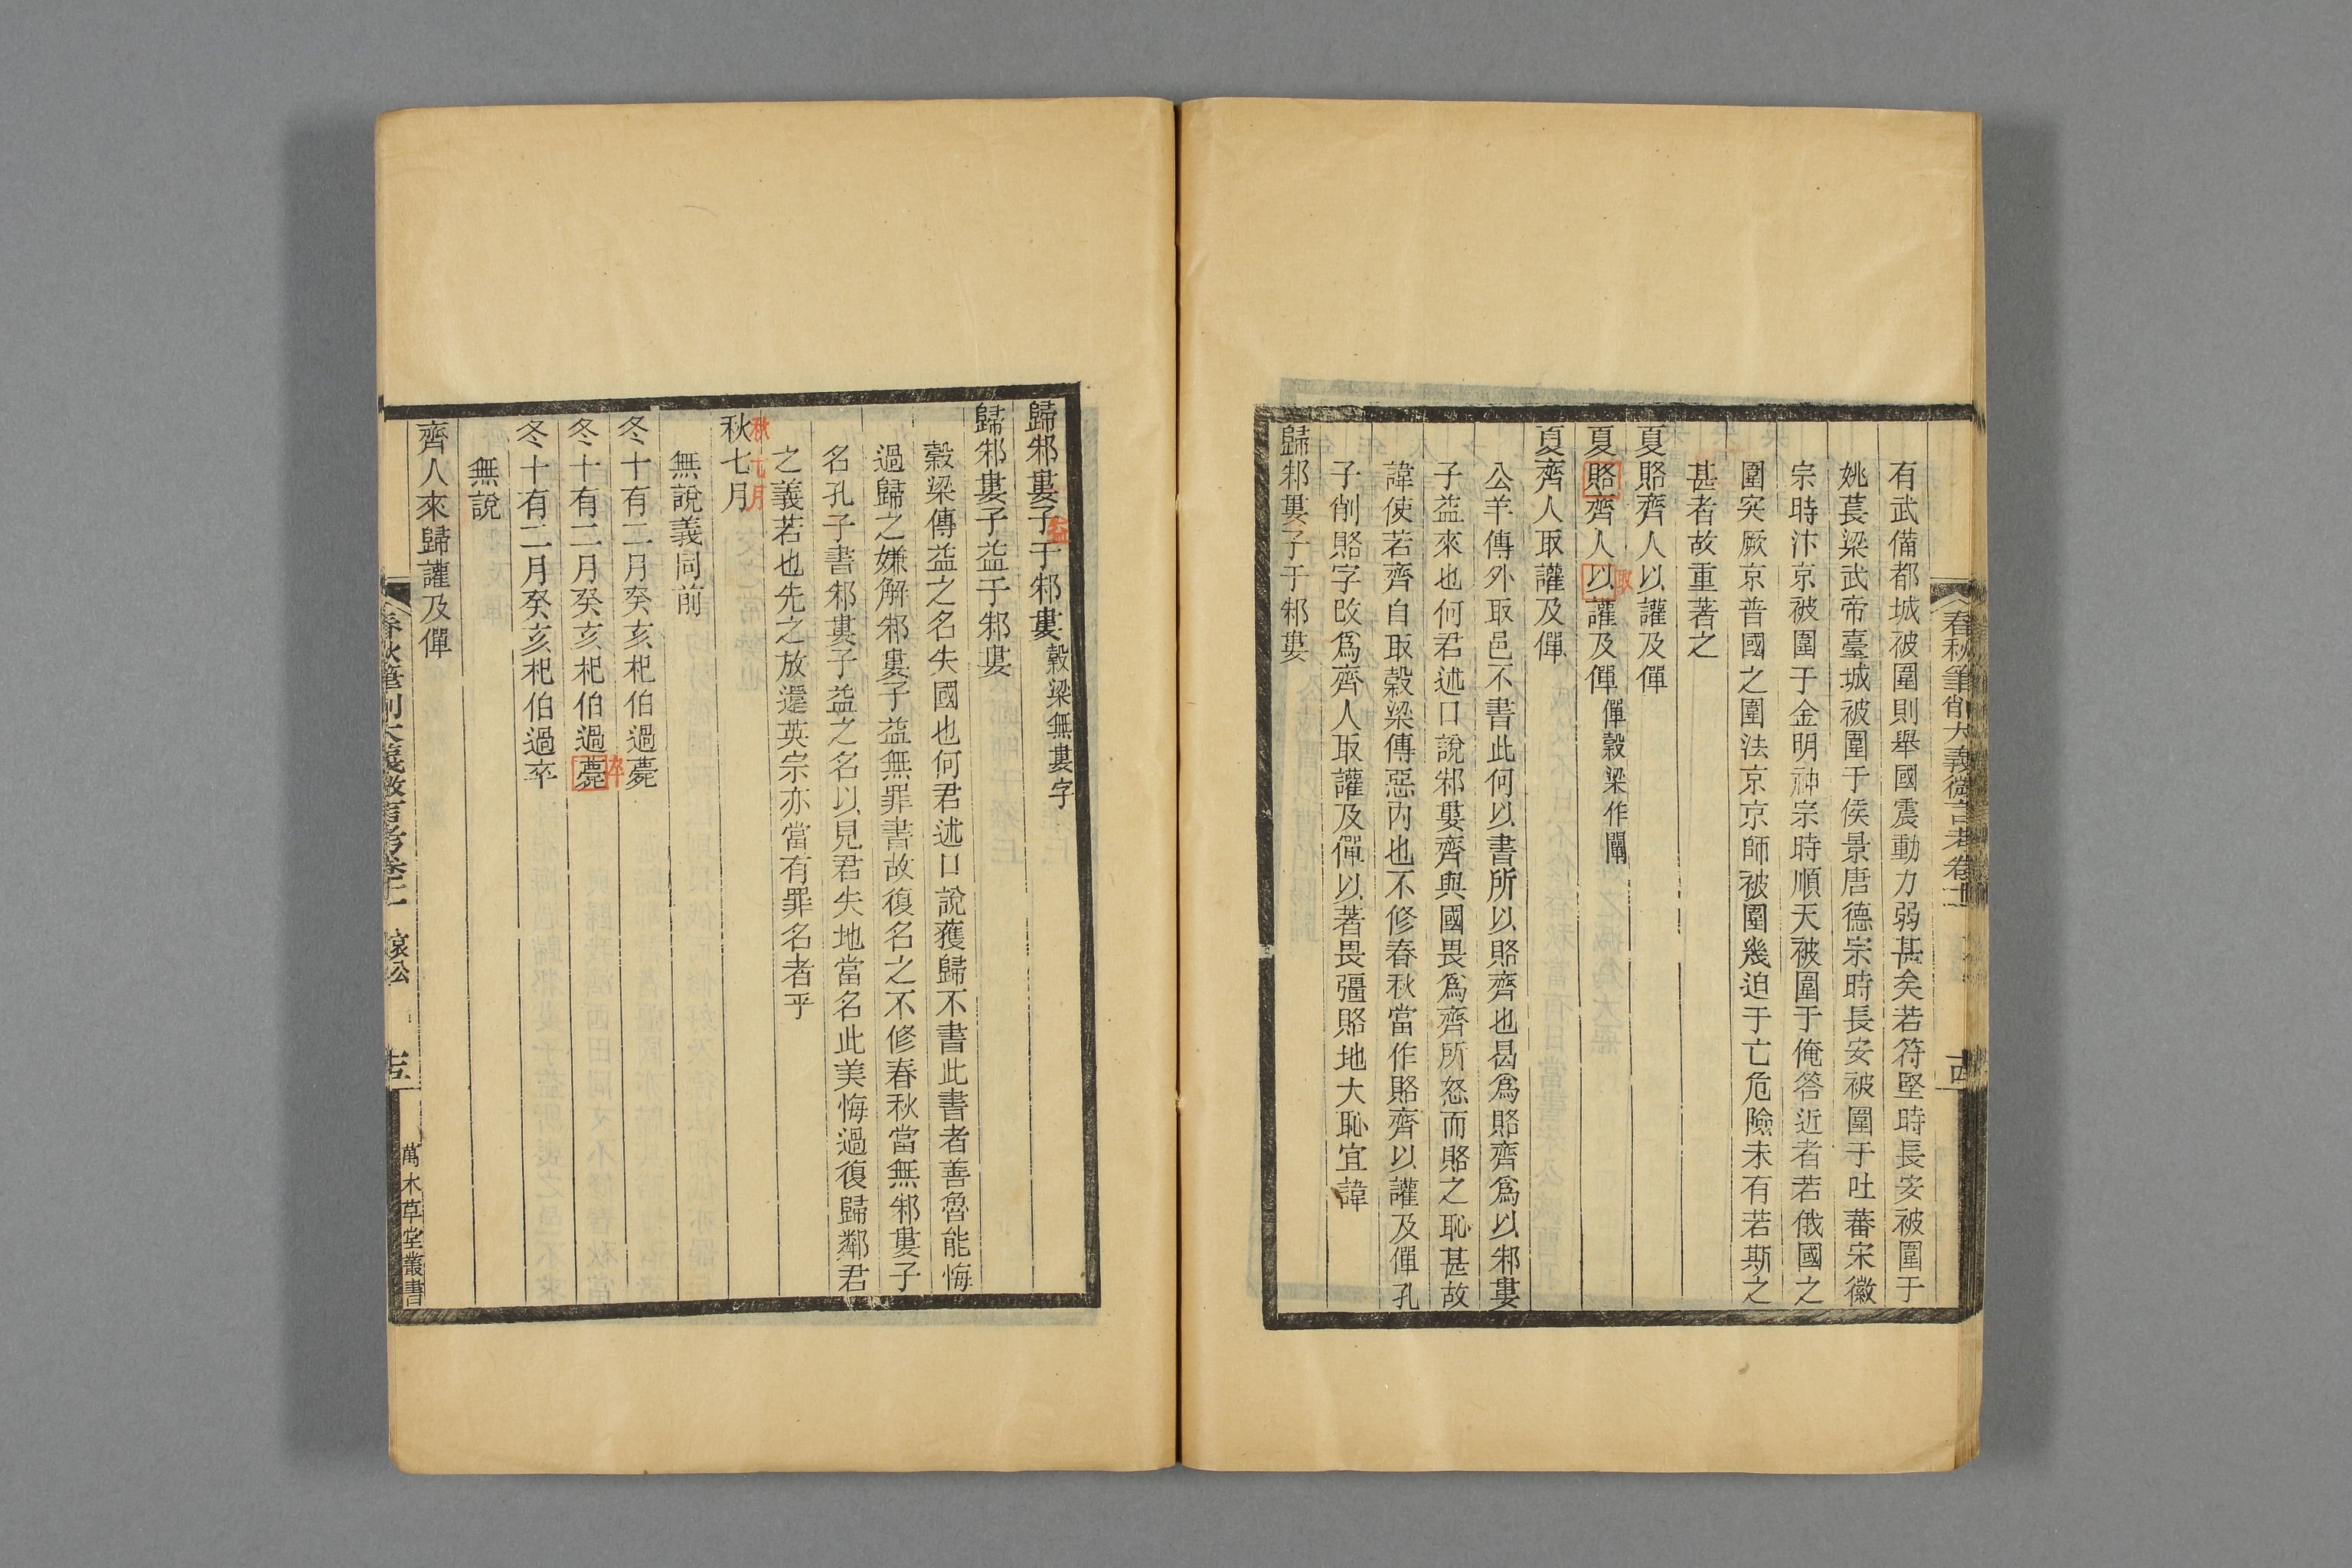 春秋筆削大義微言考卷十一
十四
有武備都城被圍則舉國震動力弱甚矣若符堅時長安被圍于
姚萇梁武帝臺城被圍于侯景唐德宗時長安被圍于吐蕃宋徽
宗時汴京被圍于金明神宗時順天被圍于俺答近者若俄國之
圍突厥京普國之圍法京京師被圍幾迫于亡危險未有若斯之
甚者故重著之
夏賂齊人以讙及僤
夏賂齊人以讙及僤僤穀梁作闡
取
夏齊人取讙及僤
公羊傳外取邑不書此何以書所以賂齊也曷爲賂齊爲以邾婁
子益來也何君述口說邾婁齊與國畏爲齊所怒而賂之恥甚故
諱使若齊自取穀梁傳惡內也不修春秋當作賂齊以讙及僤孔
子削賂字改爲齊人取讙及僤以著畏彊賂地大恥宜諱
歸邾婁子于邾婁
歸邾婁子于邾婁穀梁無婁字
益
歸邾婁子益于邾婁
穀梁傳益之名失國也何君述口說獲歸不書此書者善魯能悔
過歸之嫌解邾婁子益無罪書故復名之不修春秋當無邾婁子
名孔子書邾婁子益之名以見君失地當名此美悔過復歸鄰君
之義若也先之放還英宗亦當有罪名者乎
秋七月
秋七月
無說義同前
冬十有二月癸亥杞伯過薨
冬十有二月癸亥杞伯過薨
卒
冬十有二月癸亥杞伯過卒
無說
齊人來歸讙及僤
春秋筆削大義微言考卷十一 哀公
十五
萬木草堂叢書